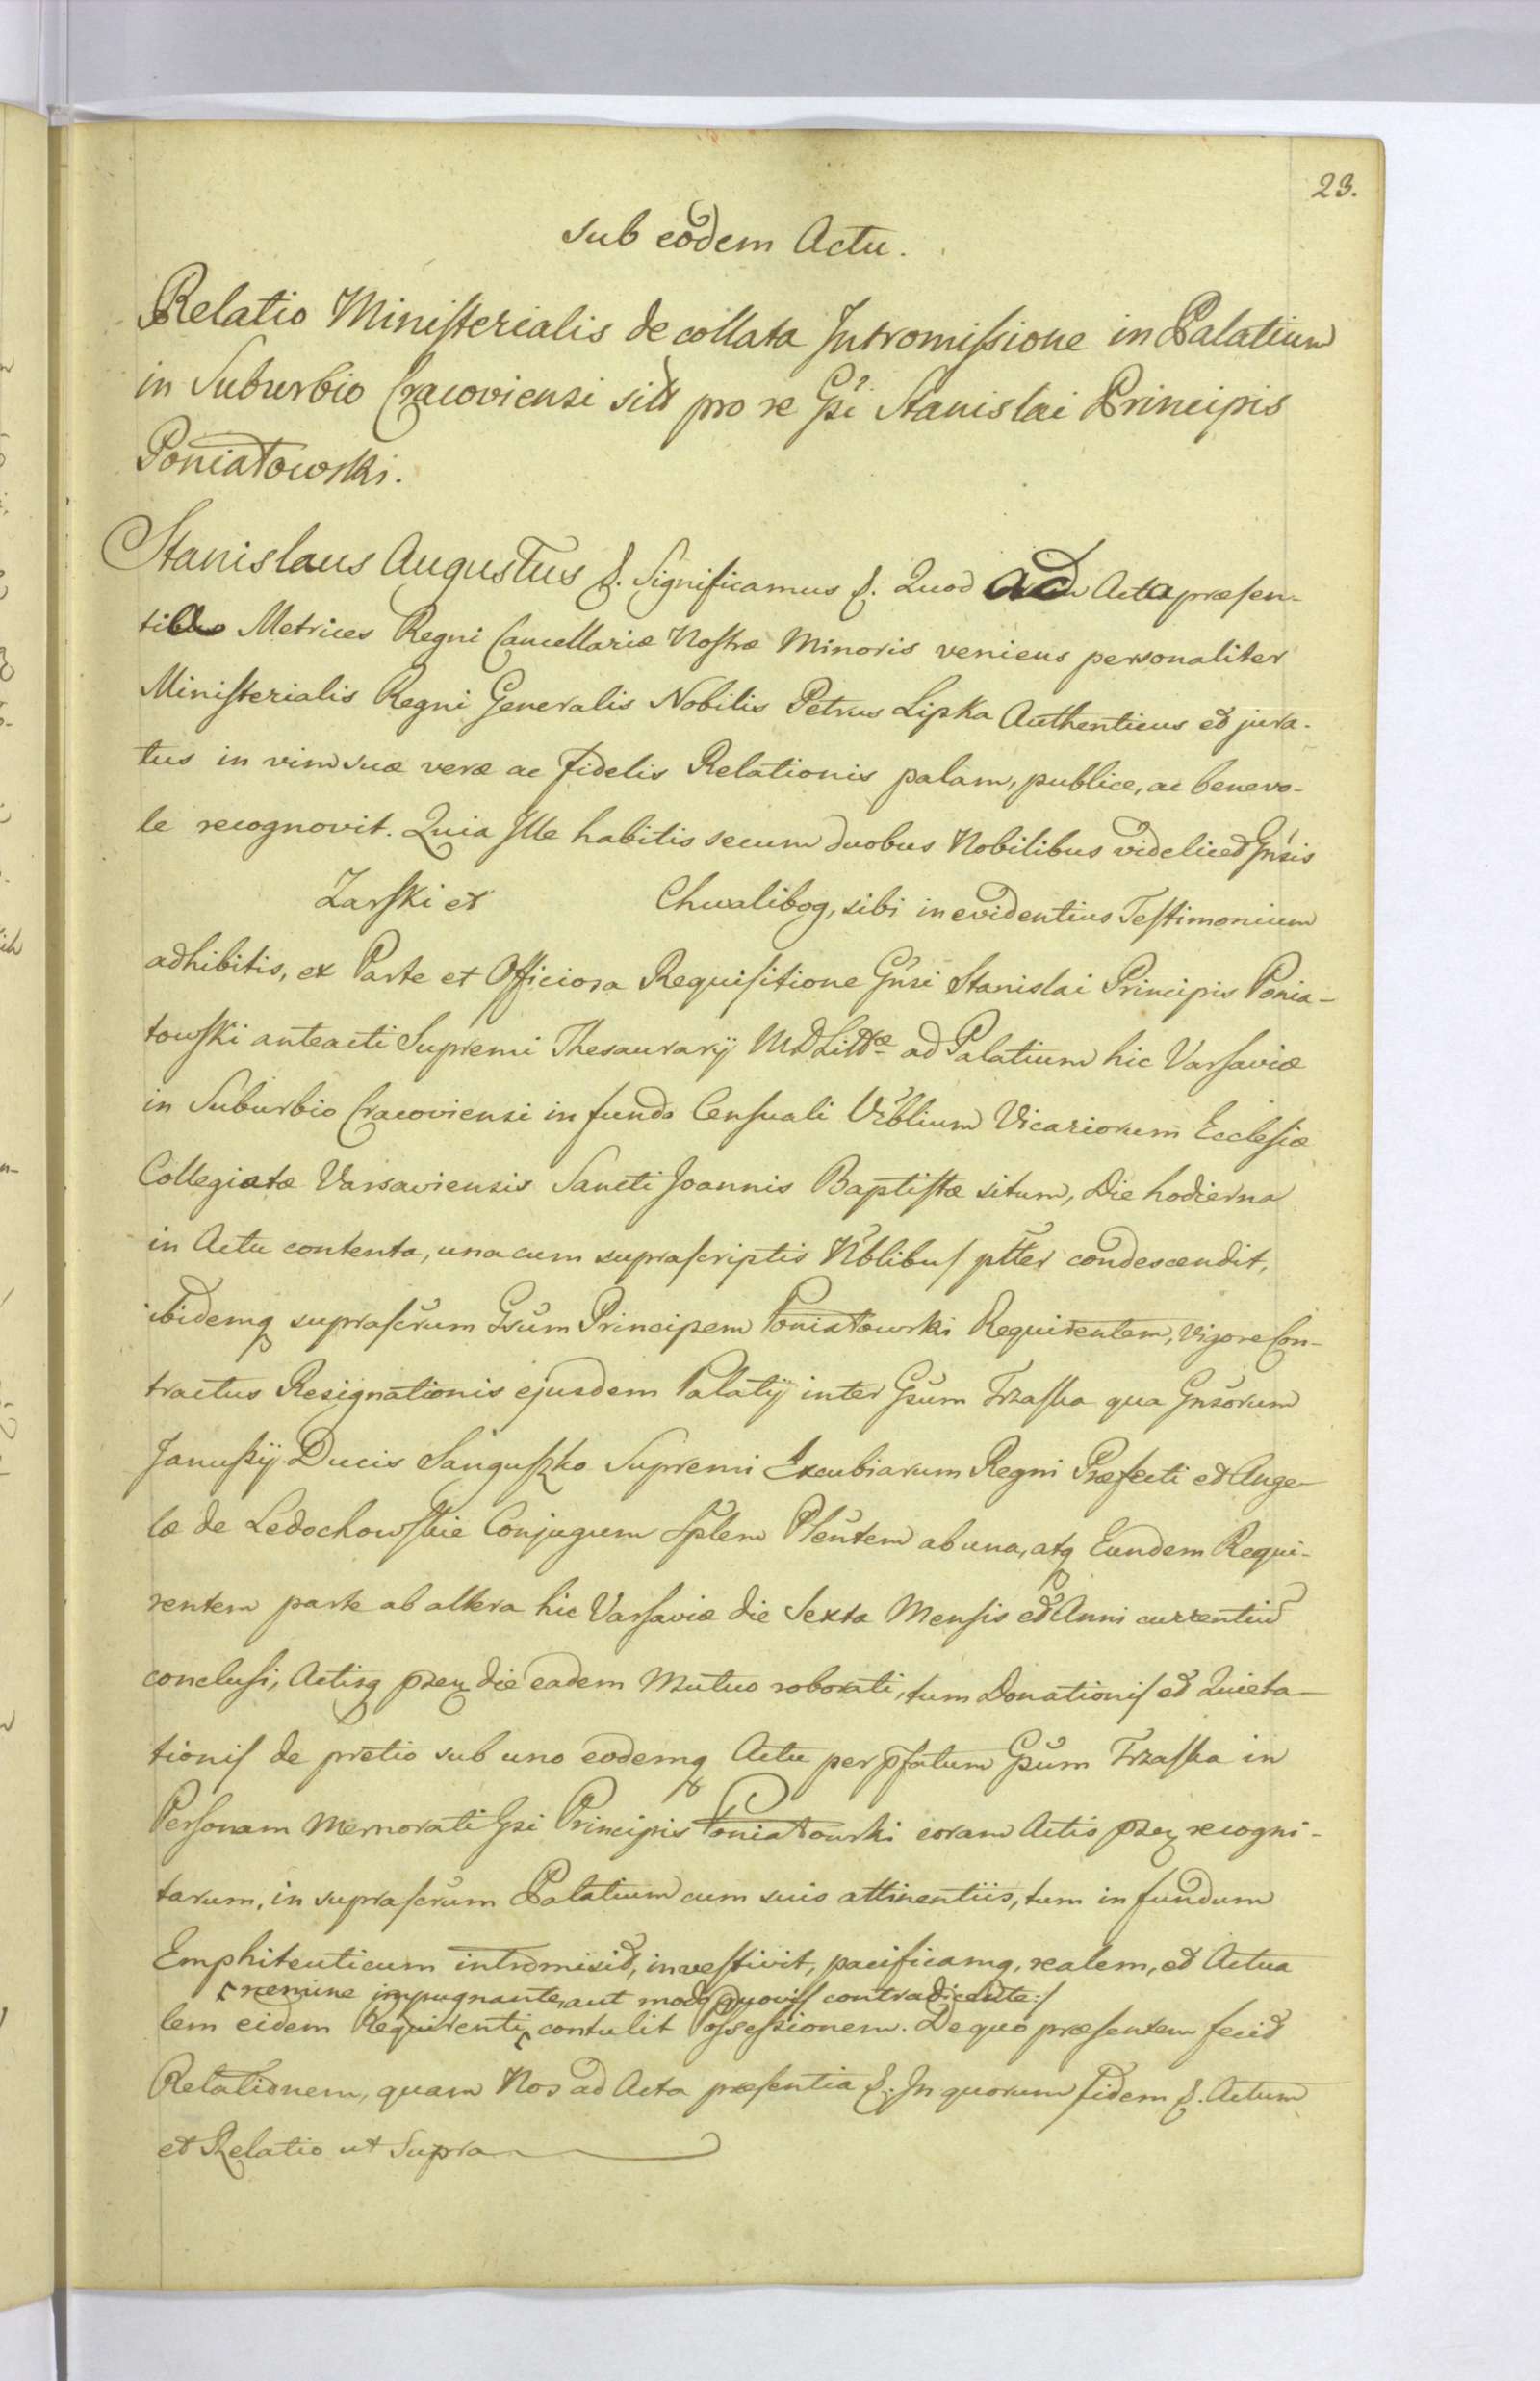 23.
sub eodem Actu.
Relatio Ministerialis de collata Intromissione in Palatium
in Suburbio Cracoviensi sitt pro re Gsi Stanislai Principis
Poniatowski.
Stanislaus Augustus &. Significamus &. Quod ad Acta præsen-
tia Metrices Regni Cancellariæ Nostræ Minoris veniens personaliter
Ministerialis Regni Generalis Nobilis Petrus Lipka Authenticus et jura-
tus in vim suæ veræ ac fidelis Relationis palam, publice, ac benevo-
le recognovit. Quia Ille habitis secum duobus Nobilibus videlicet Gnsis
Zarski et Chwalibog, sibi in evidentius Testimonium
adhibitis, ex Parte et Officiosa Requisitione Gnsi Stanislai Principis Ponia-
towski anteacti Supremi Thesaurarij MDLittæ ad Palatium hic Varsaviæ
in Suburbio Cracoviensi in fundo Censuali Vrblium Vicariorum Ecclesiæ
Collegiatæ Varsaviensis Sancti Joannis Baptistæ situm, Die hodierna
in Actu contenta, una cum suprascriptis Nblibus ptter condescendit,
ibidemq suprascrum Gsum Principem Poniatowski Requirentem, vigore Con-
tractus Resignationis ejusdem Palatij inter Gsum Trzaska qua Gnsorum
Janussij Ducis Sanguszko Supremi Excubiarum Regni Præfecti et Ange-
læ de Ledochowskie Conjugum Splem Plentem ab una, atq Eundem Requi-
rentem parte ab altera hic Varsaviæ die Sexta Mensis et Anni currentium
conclusi, Actisq pzez die eadem Mutuo roborati, tum Donationis et Quieta-
tionis de pretio sub uno eodemq Actu per pfatum Gsum Trzaska in
Personam Memorati Gsi Principis Poniatowski coram Actis pzez recogni-
tarum, in suprascrum Palatium cum suis attinentiis, tum in fundum
Emphiteuticum intromisit, investivit, pacificamq, realem, et Actua
nemine impugnante, aut modo quovis contradicente:/
lem eidem Requirenti, contulit Possessionem. De quo præsentem fecit
Relationem, quam Nos ad Acta præsentia &. In quorum fidem &. Actum
et Relatio ut Supra